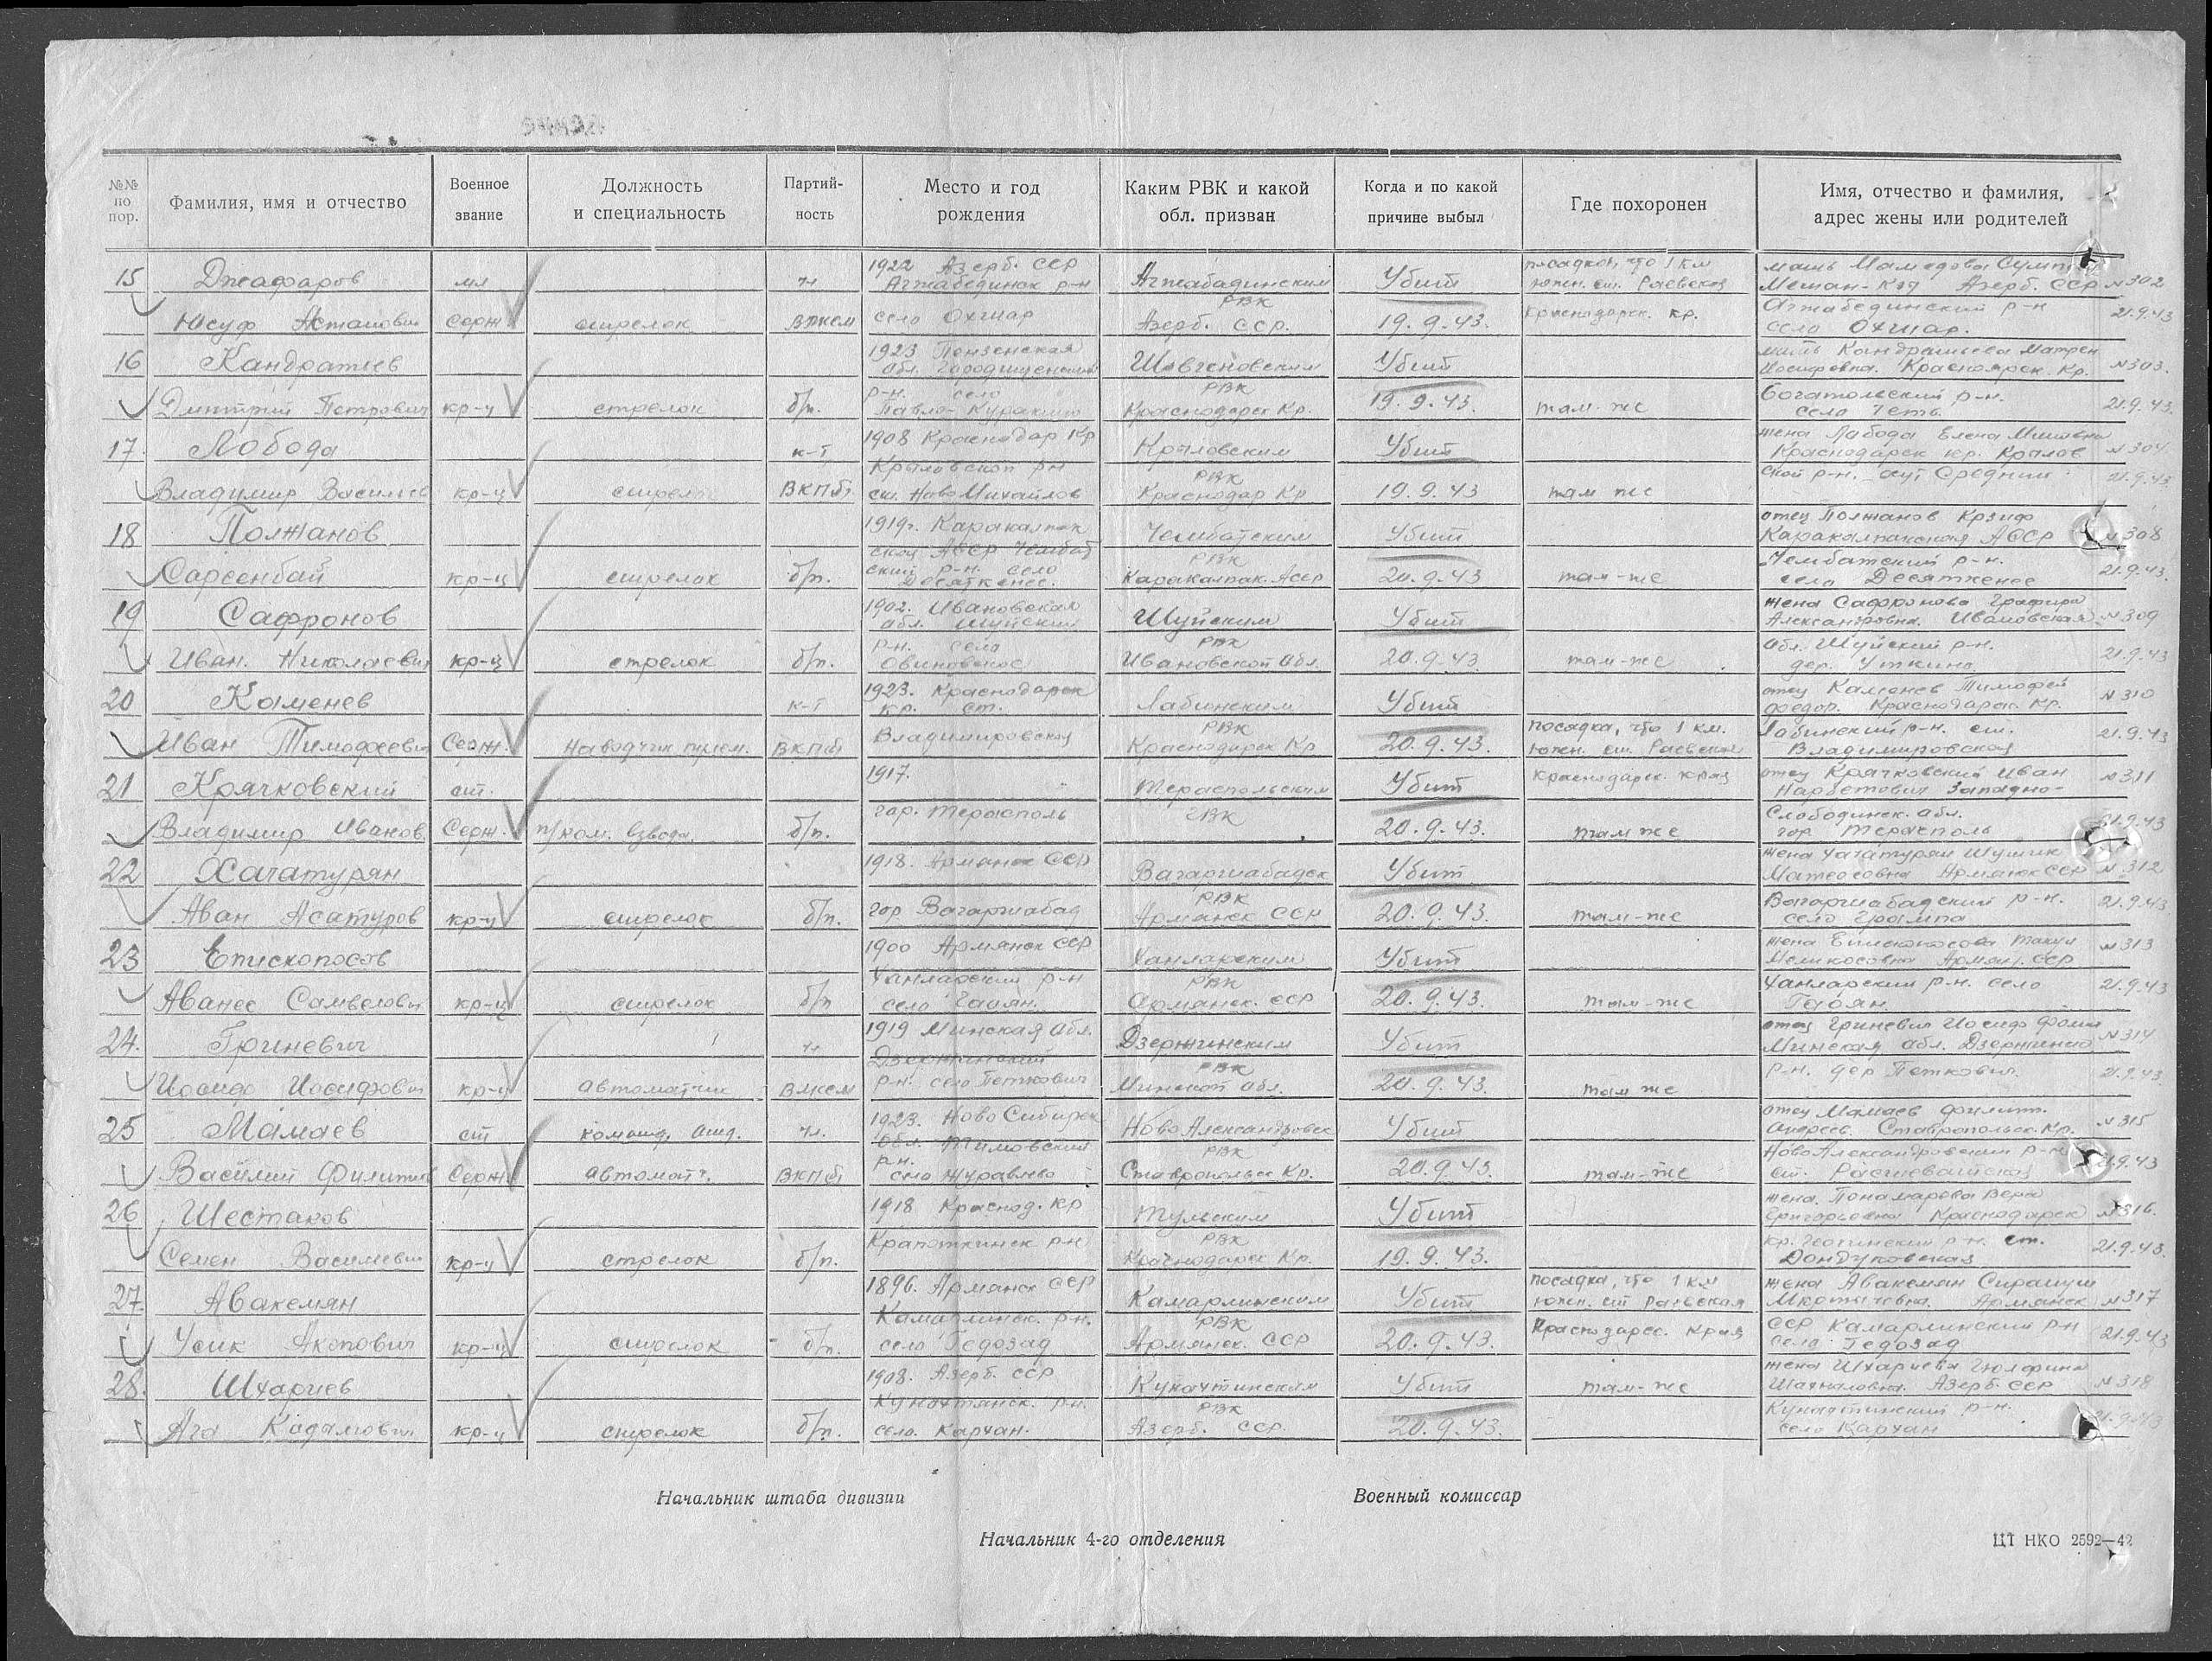 №№ по пор. Фамилия, имя и отчество Военное звание Должность и специальность Партийность Место и год рождения Каким РВК и какой обл. призван Когда и по какой причине выбыл Где похоронен Имя, отчество и фамилия, адрес жены или родителей
15 Джафаров мл чл 1922 Азерб. ССР Агжабединск р-н Агжабадинским РВК Убит посадка, что 1 км южн. ст. Раевской мать Мамедова Азерб. ССР №302
Юсуф серж стрелок ВЛКСМ село Охчиар Азерб. ССР. 19.9.43. Краснодарск. кр. Агжабединский р-н село Охчиар. 21.9.43
16 Кандратиев 1923 Пензенская обл. Городищенский Шовгеновским РВК Убит мать Кандратиева Матрен Иосифовна. Красноярск. Кр. №303.
Дмитрий Петрович кр-ц стрелок б/п. р-н. село Павло-Куракино Краснодарск Кр. 19.9.43. там-же Богатольский р-н. село Четь. 21.9.43.
17. Лобода к-т 1908 Краснодар Кр Крыловским РВК Убит жена Лабода Елена Краснодарск кр. Крылов №304
Владимир Васильев кр-ц стрелок ВКПб. Крыловской р-н ст. НовоМихайлов Краснодар Кр 19.9.43 там же ской р-н. хут Средний 21.9.43.
18 Полжанов 1919г. Каракалпак ская АССР Чембат Чембатским РВК Убит отец Полжанов Каракалпакская АССР №308
Сарсенбай кр-ц стрелок б/п. ский р-н. село Десяткенес. Каракалпак. АССР 20.9.43 там-же Чембатский р-н. село Десяткенес 21.9.43.
19 Сафронов 1902. Ивановская обл. Шуйский Шуйским РВК Убит жена Сафронова Графира Александровна. Ивановская №309
Иван. Николаевич кр-ц стрелок б/п. р-н. село Овиновское Ивановской Обл. 20.9.43 там-же Обл. Шуйский р-н. дер. Уткино 21.9.43
20 Каменев к-т 1923. Краснодарск кр. ст. Лабинским РВК Убит отец Каменев Тимофей Федор. Краснодарск. Кр. №310
Иван Тимофеевич Серж. Наводчик пулем. ВКПб Владимировской Краснодарск Кр 20.9.43. посадка, что 1 км. южн. ст. Раевской Лабинский р-н. ст. Владимировской 21.9.43
21 Крячковский ст. 1917. Тераспольским ГВК Убит Краснодарск. края отец Крячковский Иван Западно- №311
Владимир Иванов Серж. п/ком. взвода. б/п. гор. Терасполь 20.9.43. там же Слободинск. обл. гор Терасполь 21.9.43
22 Хачатурян 1918. Армянск ССР Вагаршабадск РВК Убит жена Хачатурян Шушик Матеосовна Армянск ССР №312
Аван Асатуров кр-ц стрелок б/п. гор Вагаршабад Армянск ССР 20.9.43. там-же Вагаршабадский р-н. село 21.9.43
23 Епископосов 1900 Армянск ССР Ханларским РВК Убит жена Епископосова Меликосовна Армян. ССР №313
Аванес Самвелович кр-ц стрелок б/п Ханларский р-н село Армянск. ССР 20.9.43. там-же Ханларский р-н. село 21.9.43
24. Гриневич чл 1919 Минская Обл. Дзержинским РВК Убит отец Гриневич Иосиф Фомич Минская обл. Дзержинск №314
Иосиф Иосифович кр-ц автоматчик ВЛКСМ Дзержинский р-н. село Петкович Минской Обл. 20.9.43. там же р-н. дер Петкович. 21.9.43.
25 Мамаев ст команд. отд. чл. 1923. НовоСибирск Обл. НовоАлександровск РВК Убит отец Мамаев Филипп. Андреев. Ставропольск. Кр. №315
Василий Филипов Серж. автомат. ВКПб р-н. село Журавлево Ставропольск Кр. 20.9.43. там-же НовоАлександровский р-н ст. 21.9.43
26 Шестаков 1918 Краснод. Кр Тульским РВК Убит жена. Понамарова Вера Григорьевна Краснодарск №316.
Семен Василевич кр-ц стрелок б/п. Крапоткинск р-н Краснодарск Кр. 19.9.43. кр. р-н. ст. Дондуковская 21.9.43.
27. Авакемян 1896. Армянск ССР Камарлинским РВК Убит посадка, что 1 км южн. ст Раевская жена Авакемян Сирануш Мкртычевна. Армянск №317
Усик Акопович кр-ц стрелок б/п. Камарлинск. р-н. село Гедозад Армянск. ССР 20.9.43. Краснодарск. Края ССР Камарлинский р-н село Гедозад 21.9.43
28. Шхариев 1908. Азерб. ССР Куначтинским РВК Убит там-же жена Шхариева Азерб. ССР №318
Ага Кадамович кр-ц стрелок б/п. Куначтинск. р-н. село. Карчан. Азерб. ССР 20.9.43. Куначтинский р-н. село Карчан 21.9.43
Начальник штаба дивизии Военный комиссар
Начальник 4-го отделения ЦТ НКО 2592—42